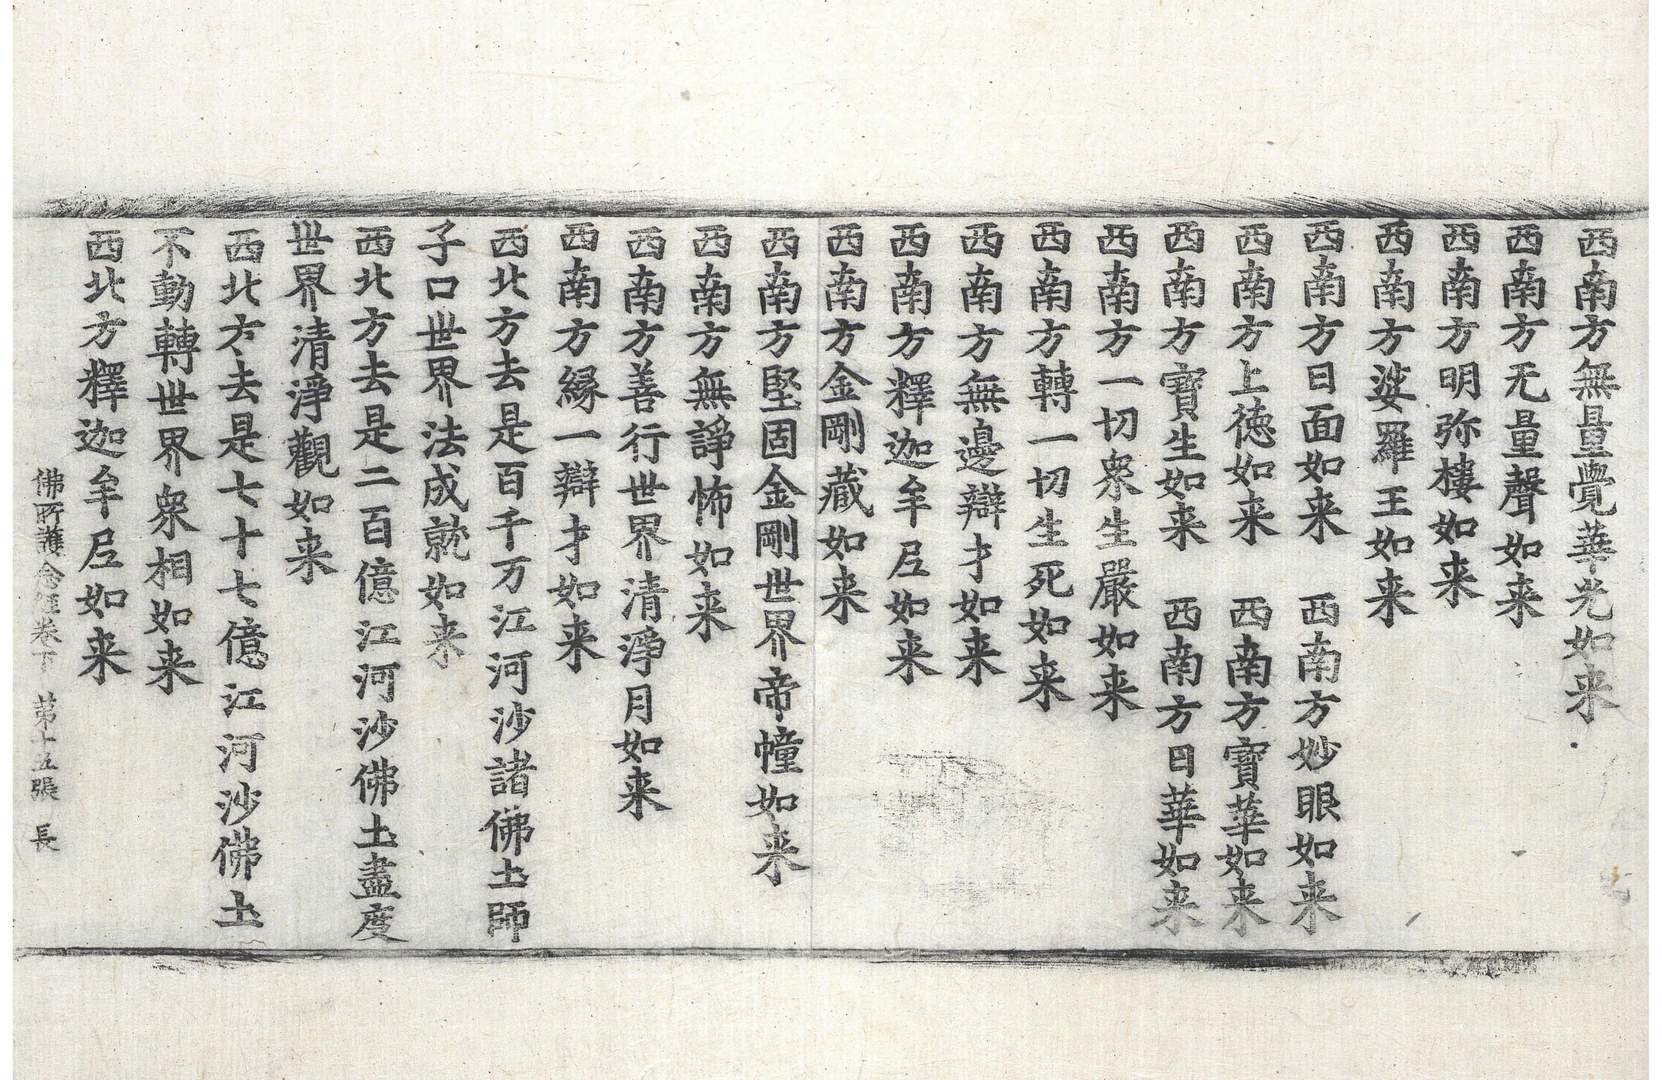 西南方無量覺華光如来
西南方无量聲如来
西南方明弥樓如来
西南方娑羅王如来
西南方日面如来　西南方妙眼如来
西南方上徳如来　西南方寶華如来
西南方寶生如来　西南方日華如来
西南方一切衆生嚴如来
西南方轉一切生死如来
西南方無邊辯才如来
西南方釋迦牟尼如来
西南方金剛藏如来
西南方堅固金剛世界帝幢如来
西南方無諍怖如来
西南方善行世界清淨月如来
西南方縁一辯才如来
西北方去是百千万江河沙諸佛土師
子口世界法成就如来
西北方去是二百億江河沙佛土盡度
世界清淨觀如来
西北方去是七十七億江河沙佛土
不動轉世界衆相如来
西北方釋迦牟尼如来
佛所護念經卷下　第十五張　長